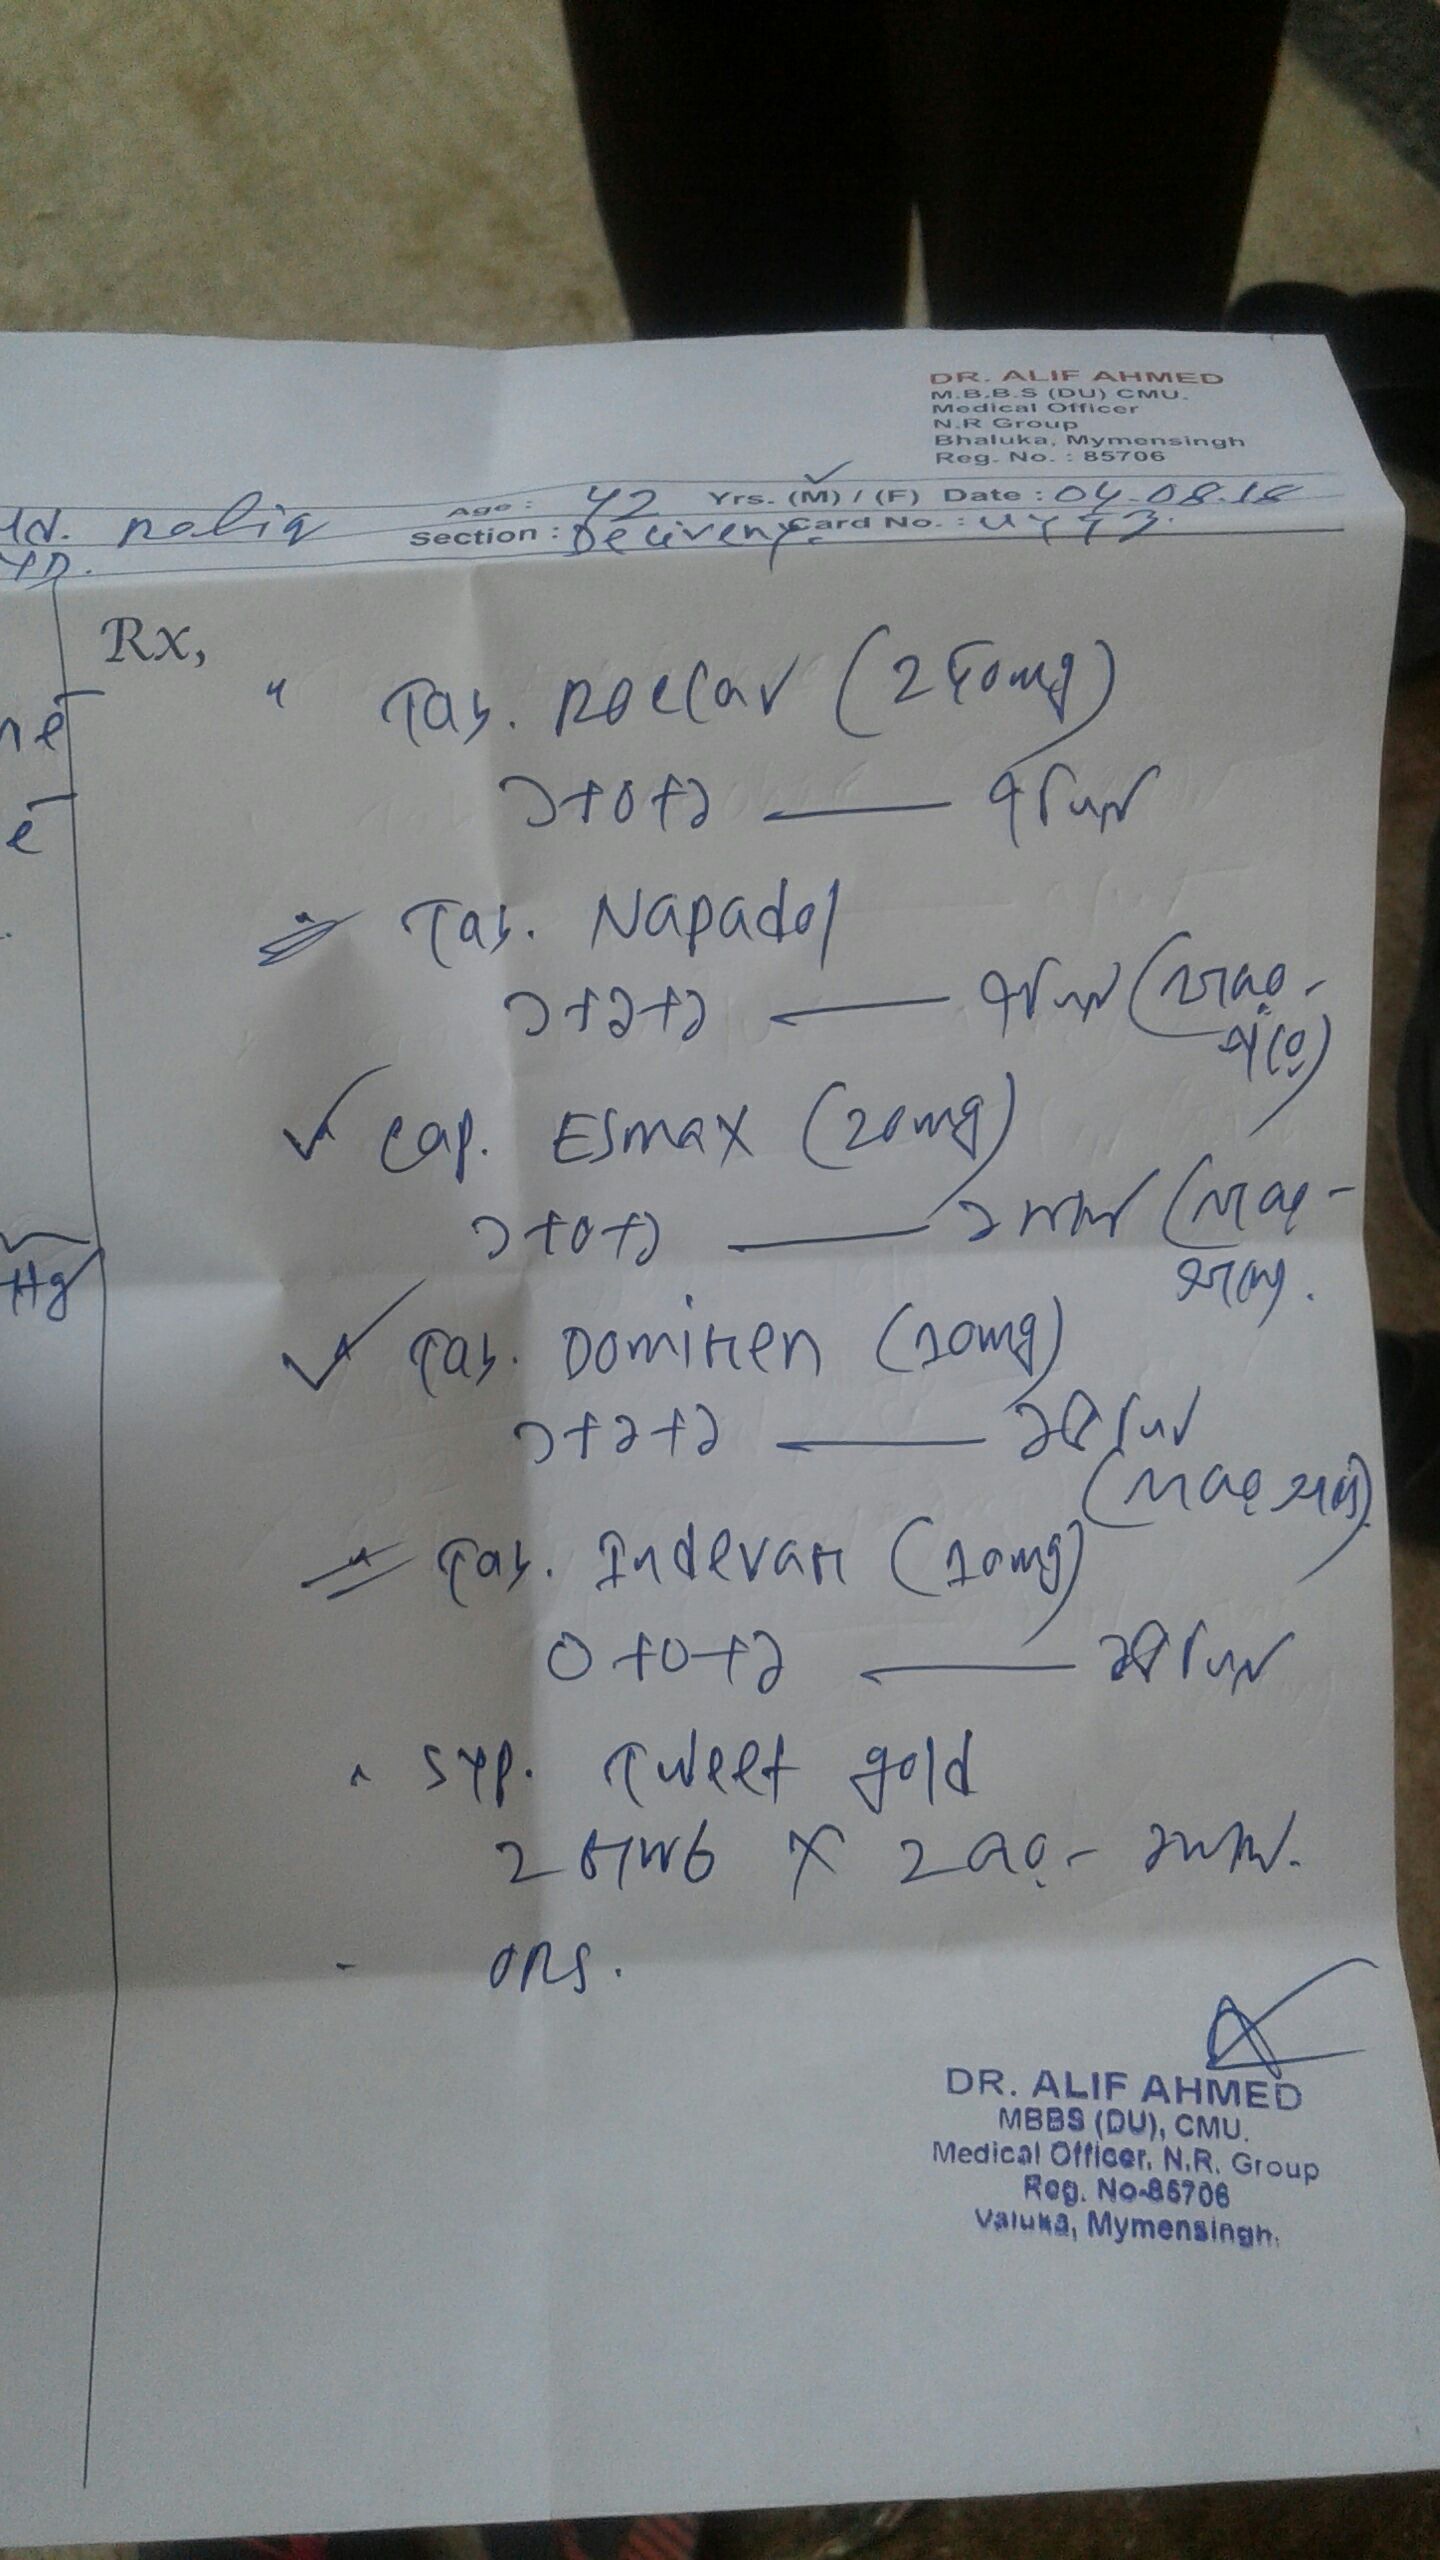 DR. ALIF AHMED
M.B.B.S (DU) CMU.
Medical Officer
N.R Group
Bhaluka, Mymensingh
Reg. No. : 85706
Age : 42 Yrs. (M) / (F) Date : 04.08.18
Section : Delivery. Card No. :
Rx,
Tab. (250mg)
১+০+১ — ৭ দিন
Tab. Napadol
১+১+১ — ৭ দিন
Cap. Esmax (20mg)
১+০+১ — ১ মাস
Tab. Domiren (10mg)
১+১+১ — ১৫ দিন
Tab. Indevar (10mg)
০+০+১ — ১৫ দিন
Syp. gold
২ চামচ X ২ - ১ মাস.
ORS.
DR. ALIF AHMED
MBBS (DU), CMU.
Medical Officer, N.R. Group
Reg. No-85706
Valuka, Mymensingh.
Hg